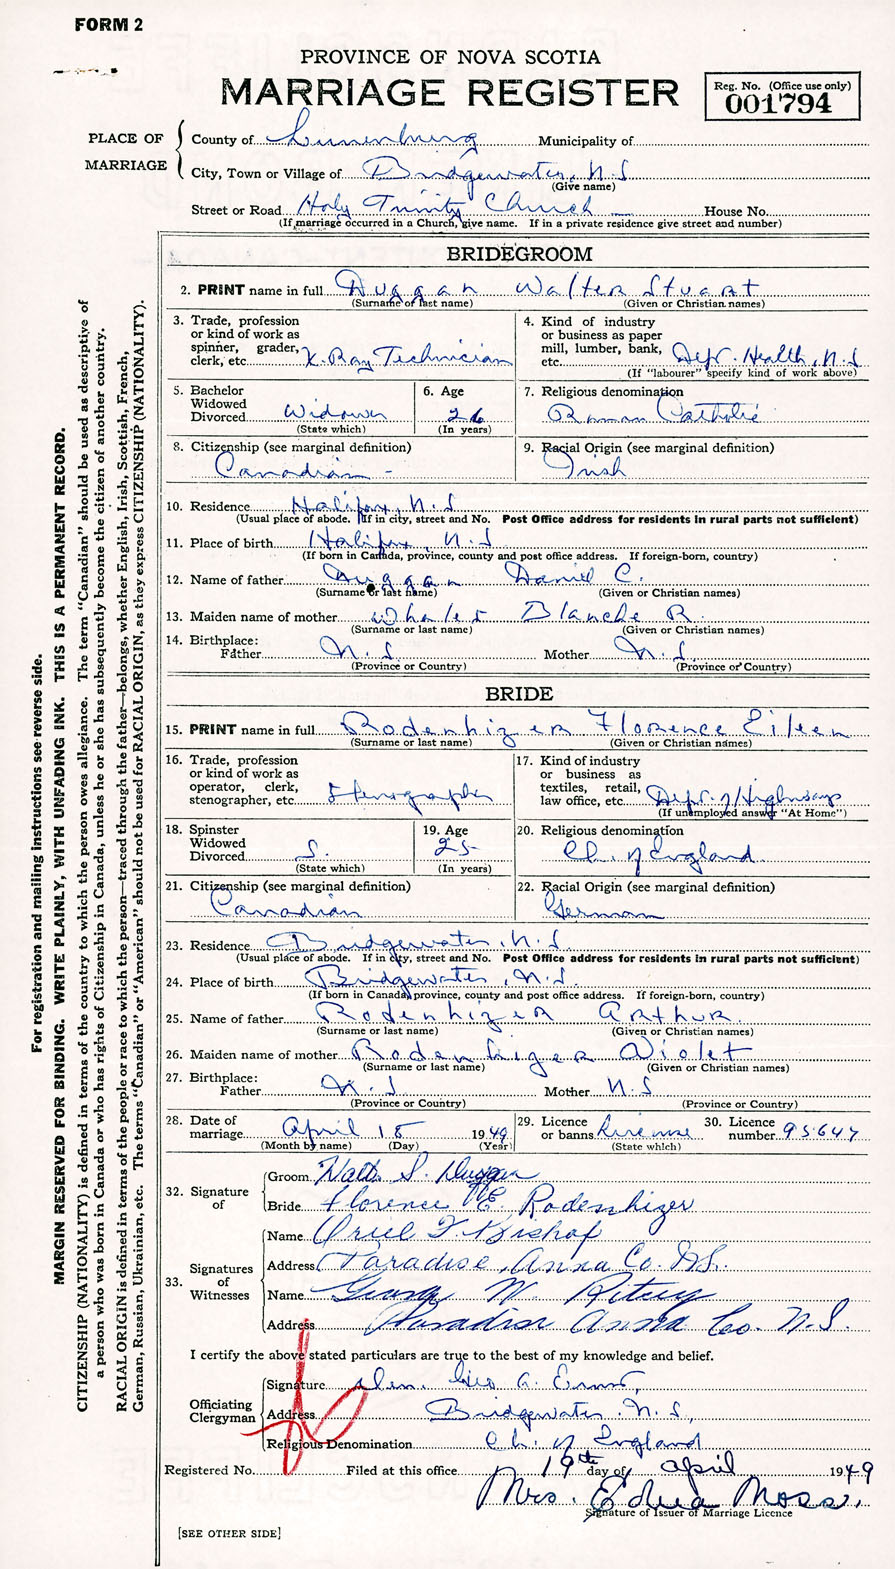 FORM 2
PROVINCE OF NOVA SCOTIA
MARRIAGE REGISTER
Reg. No. (Office use only)
001794
PLACE OF MARRIAGE
County of Lunenburg Municipality of
City, Town or Village of Bridgewater, N.S
(Give name)
Street or Road Holy Trinity Church House No.
(If marriage occurred in a Church, give name. If in a private residence give street and number)
BRIDEGROOM
2. PRINT name in full Duggan Walter Stuart
(Surname or last name) (Given or Christian names)
3. Trade, profession or kind of work as spinner, grader, clerk, etc. X-Ray Technician
4. Kind of industry or business as paper mill, lumber, bank, etc. Dept. Health, N.S
(If "labourer" specify kind of work above)
5. Bachelor Widowed Divorced Widower
(State which)
6. Age 26
(In years)
7. Religious denomination
Roman Catholic
8. Citizenship (see marginal definition)
Canadian -
9. Racial Origin (see marginal definition)
Irish
10. Residence Halifax, N.S
(Usual place of abode. If in city, street and No. Post Office address for residents in rural parts not sufficient)
11. Place of birth Halifax, N.S
(If born in Canada, province, county and post office address. If foreign-born, country)
12. Name of father Duggan Daniel C.
(Surname or last name) (Given or Christian names)
13. Maiden name of mother Blanche R.
(Surname or last name) (Given or Christian names)
14. Birthplace:
Father N.S. Mother N.S.
(Province or Country) (Province or Country)
BRIDE
15. PRINT name in full Rodenhizer Florence Eileen
(Surname or last name) (Given or Christian names)
16. Trade, profession or kind of work as operator, clerk, stenographer, etc. Stenographer
17. Kind of industry or business as textiles, retail, law office, etc. Dept. of Highways
(If unemployed answer "At Home")
18. Spinster Widowed Divorced S.
(State which)
19. Age 25
(In years)
20. Religious denomination
Ch. of England
21. Citizenship (see marginal definition)
Canadian
22. Racial Origin (see marginal definition)
German
23. Residence Bridgewater, N.S.
(Usual place of abode. If in city, street and No. Post Office address for residents in rural parts not sufficient)
24. Place of birth Bridgewater, N.S.
(If born in Canada, province, county and post office address. If foreign-born, country)
25. Name of father Rodenhizer Arthur.
(Surname or last name) (Given or Christian names)
26. Maiden name of mother Rodenhizer Violet
(Surname or last name) (Given or Christian names)
27. Birthplace:
Father N.S Mother N.S
(Province or Country) (Province or Country)
28. Date of marriage April 18 1949
(Month by name) (Day) (Year)
29. Licence or banns License
(State which)
30. Licence number 95647
32. Signature of
Groom Walter S. Duggan
Bride Florence E. Rodenhizer
33. Signatures of Witnesses
Name Oriel F. Bishop
Address Paradise, Anna Co. N.S.
Name George W.
Address Paradise Anna Co. N.S.
I certify the above stated particulars are true to the best of my knowledge and belief.
Officiating Clergyman
Signature Geo A. Ernst,
Address Bridgewater N.S,
Religious Denomination Ch. of England
Registered No. Filed at this office 19th day of April 1949
Mrs. Edna Moss.
Signature of Issuer of Marriage Licence
[SEE OTHER SIDE]
For registration and mailing instructions see reverse side.
MARGIN RESERVED FOR BINDING. WRITE PLAINLY, WITH UNFADING INK. THIS IS A PERMANENT RECORD.
CITIZENSHIP (NATIONALITY) is defined in terms of the country to which the person owes allegiance. The term "Canadian" should be used as descriptive of
a person who was born in Canada or who has rights of Citizenship in Canada, unless he or she has subsequently become the citizen of another country.
RACIAL ORIGIN is defined in terms of the people or race to which the person—traced through the father—belongs, whether English, Irish, Scottish, French,
German, Russian, Ukrainian, etc. The terms "Canadian" or "American" should not be used for RACIAL ORIGIN, as they express CITIZENSHIP (NATIONALITY).